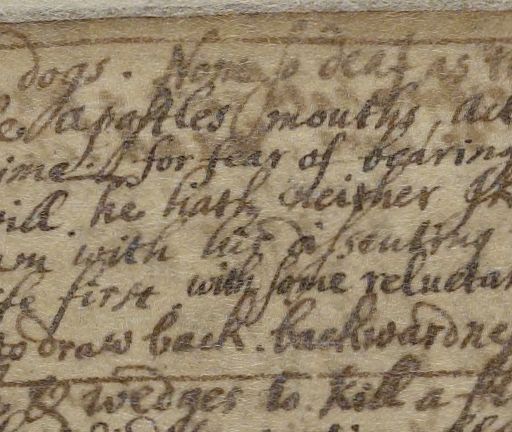 dogs. None so deaf as
Apostles mouths, Act
ime. for fear of bearing
ill. he hath neither
with his assenting
first. with some reluctan
to draw back. backwardne
wedges to kill a